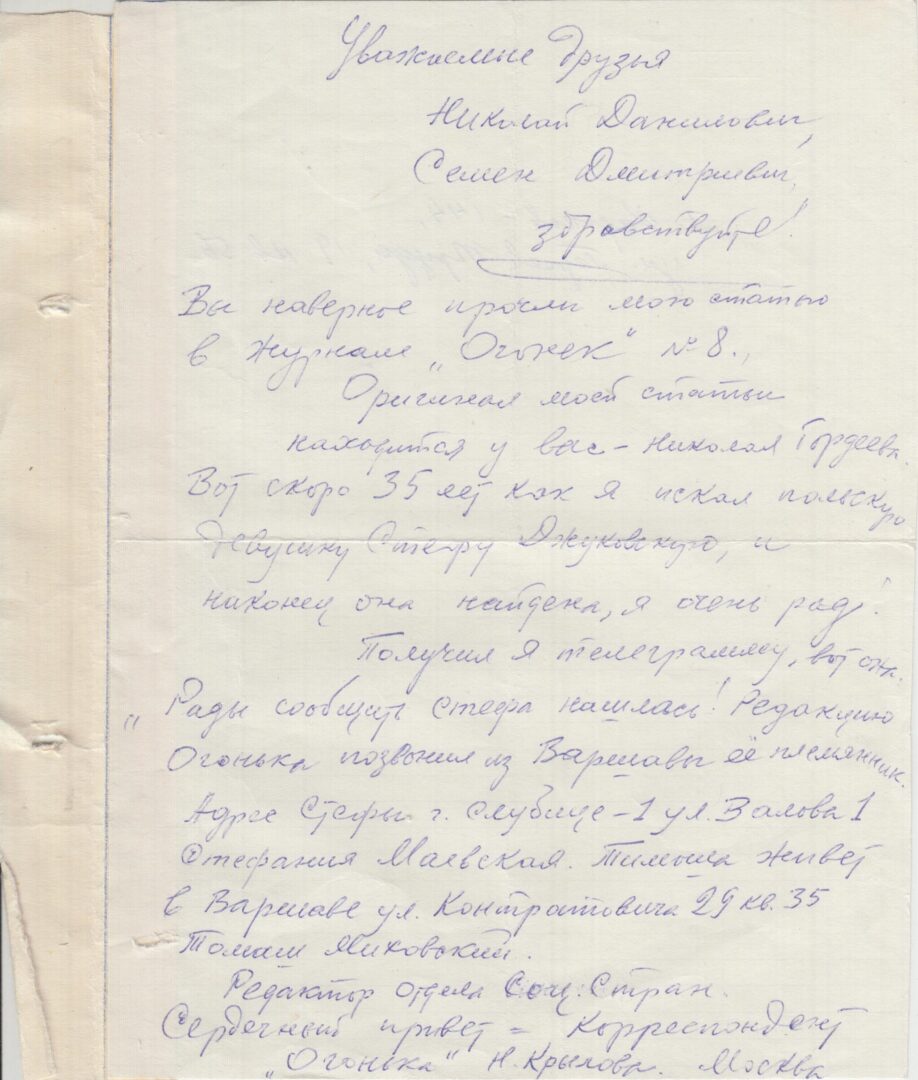 Уважаемые друзья
Николай Данилович,
Семен Дмитриевич,
здравствуйте!
Вы наверное прочли мою статью
в журнале „Огонек“ № 8.,
Оригинал моей статьи
находится у вас – Николая Гордеева.
Вот скоро 35 лет как я искал польскую
девушку Стефу Джуковскую, и
наконец она найдена, я очень рад!
Получил я телеграмму, вот она.
„Рады сообщить Стефа нашлась! Редакцию
Огонька позвонил из Варшавы её племянник.
Адрес Стефы г. Слубице-1 ул. Валова 1
Стефания Маевская. живет
в Варшаве ул. Контратовича 29 кв. 35
Томаш Миховский.
Редактор отдела Соц. Стран.
Сердечный привет = Корреспондент
„Огонька“ Н. Крылова. Москва